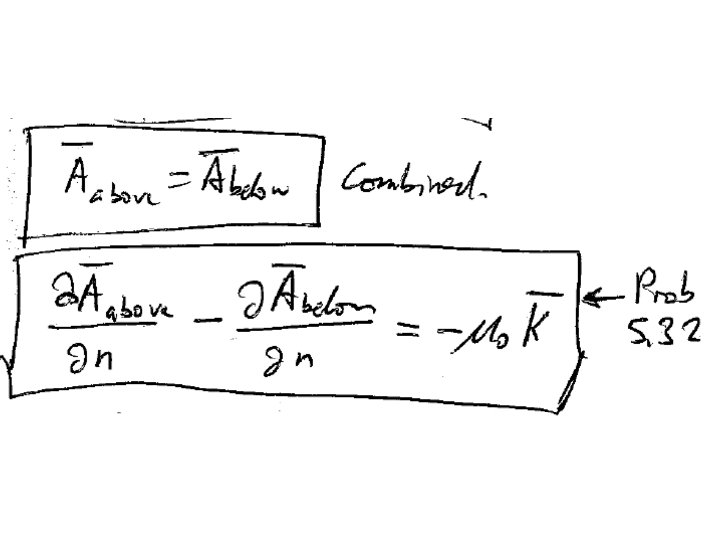 A̅above = A̅below Combined.
∂A̅above/∂n − ∂A̅below/∂n = −μ₀K̅ ← Prob 5.32